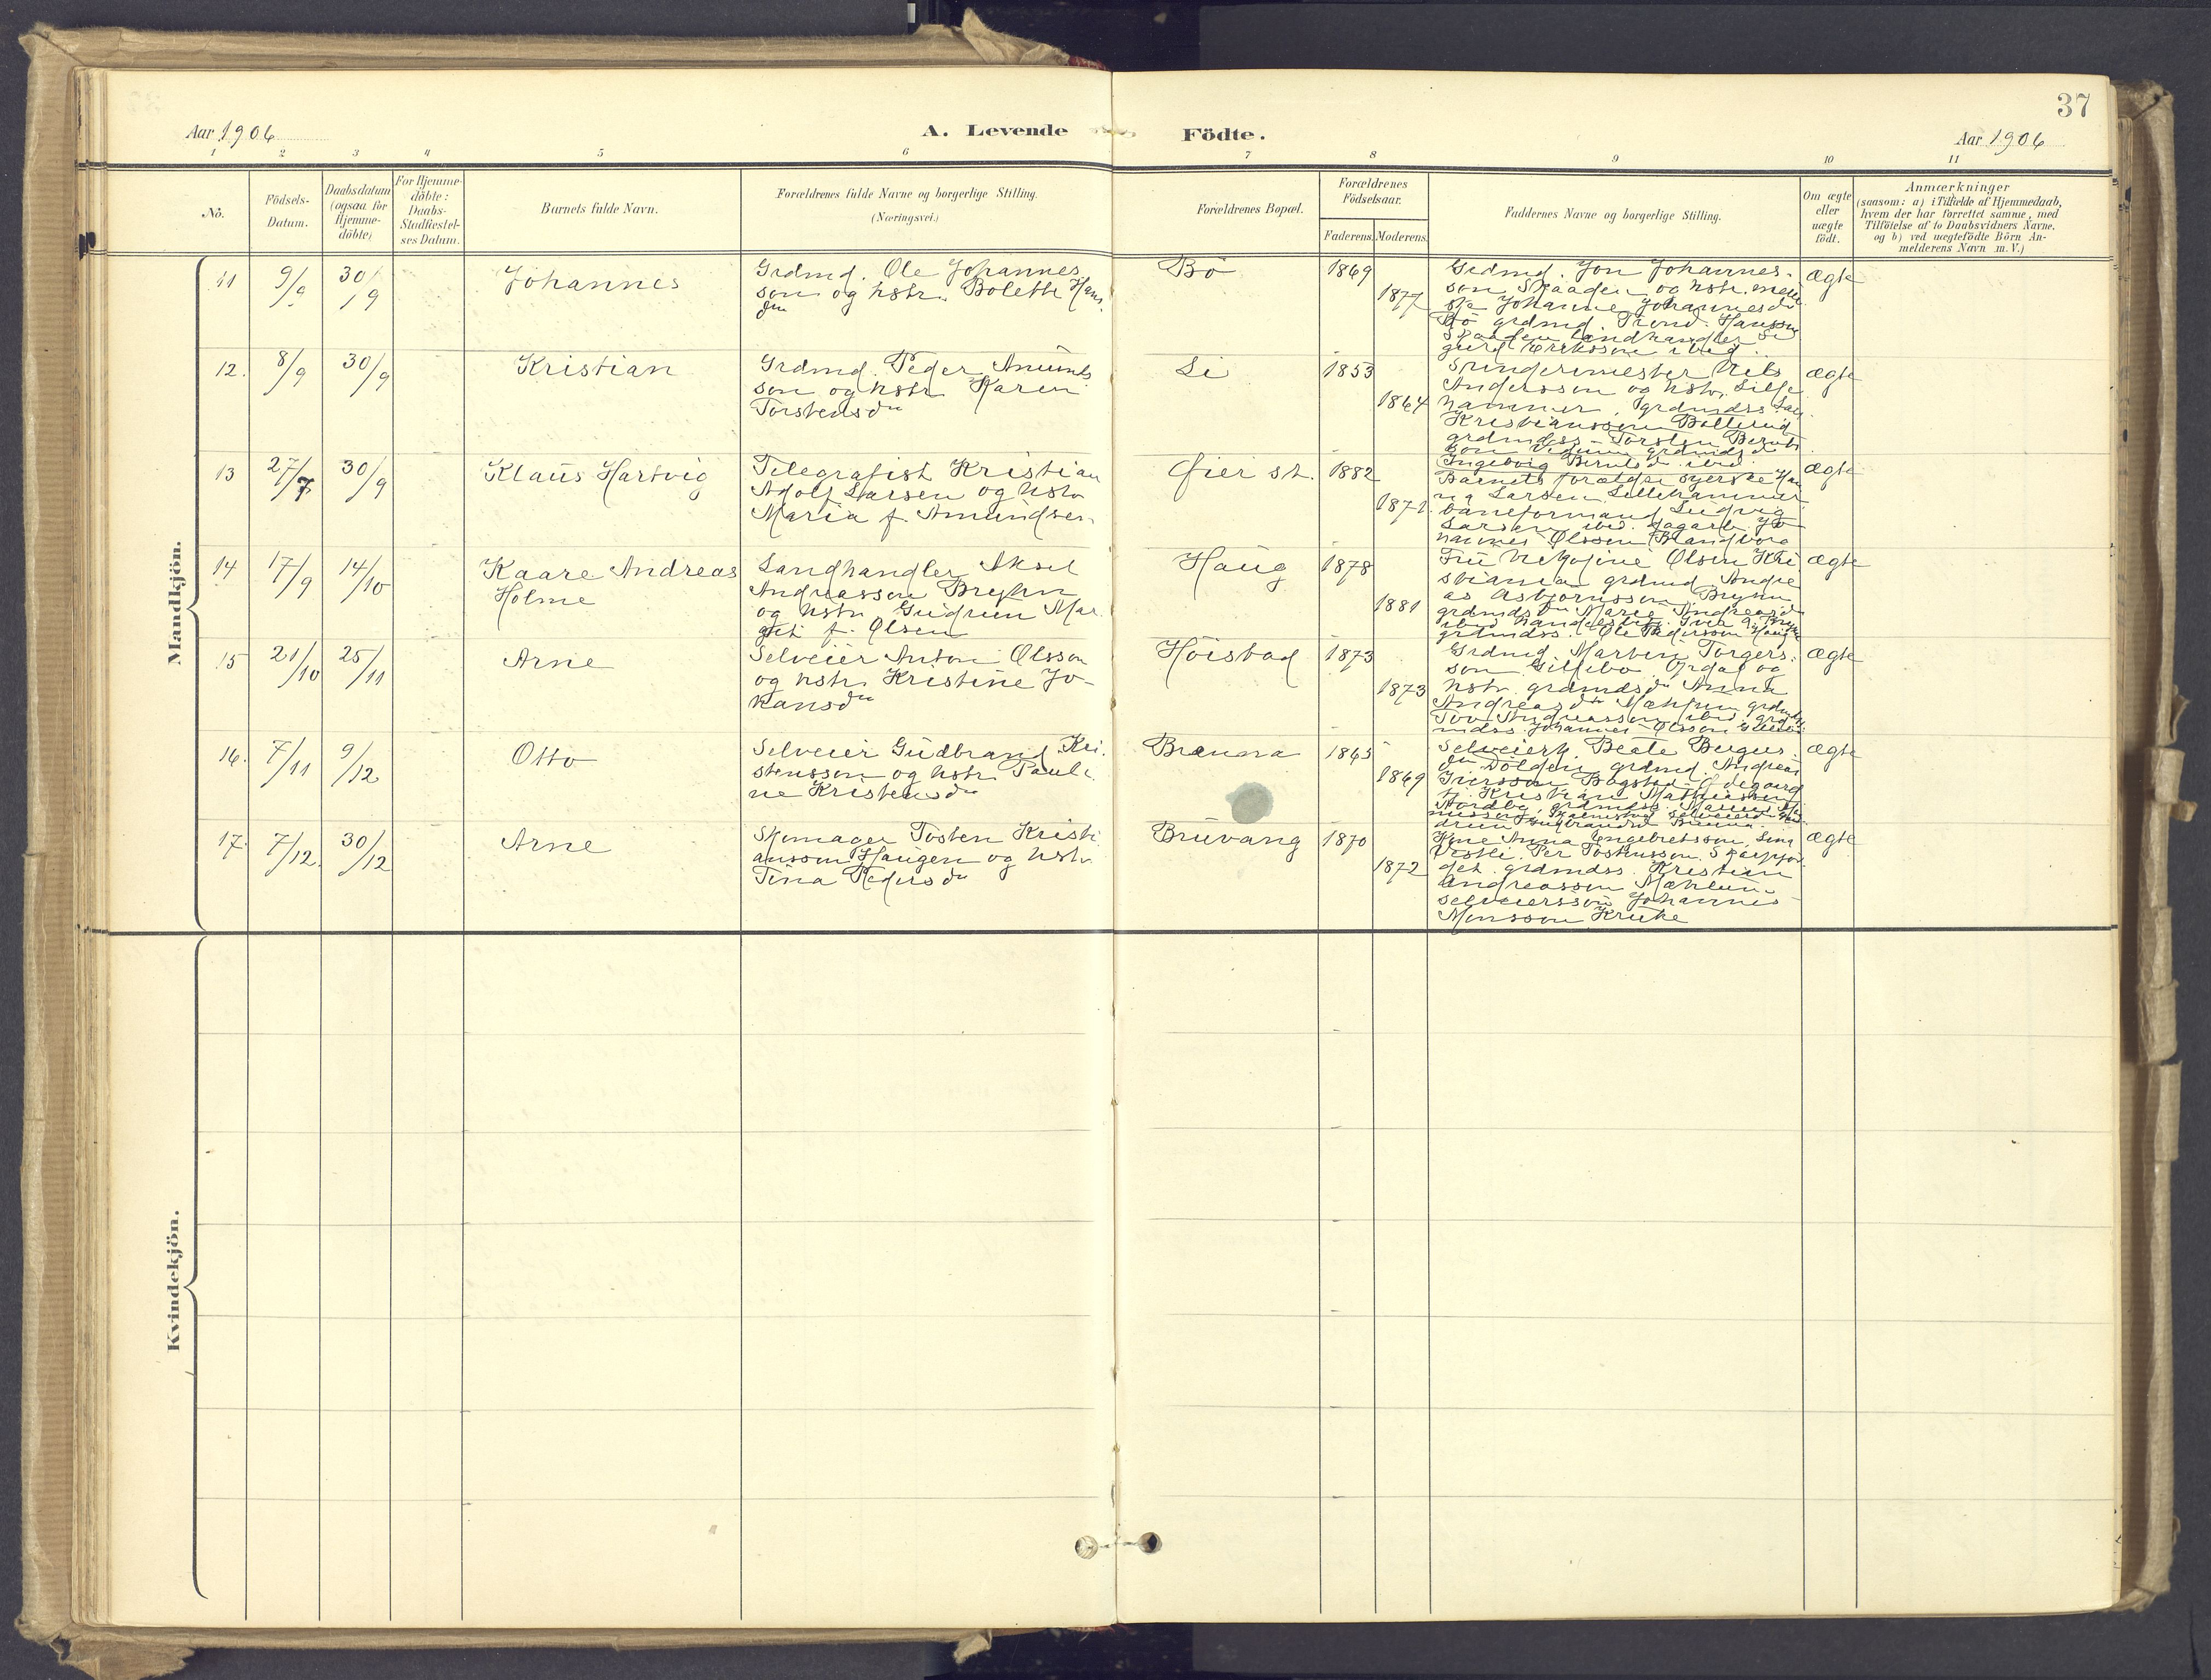 37
Aar 1906
A. Levende Födte.
Aar 1906
1 2 3 4 5 6 7 8 9 10 11
No.
Födsels-
Datum.
Daabsdatum
(ogsaa for
Hjemme-
döbte)
For Hjemme-
döbte:
Daabs-
Stadfæstel-
ses Datum.
Barnets fulde Navn.
Forældrenes fulde Navne og borgerlige Stilling.
(Næringsvei.)
Forældrenes Bopæl.
Forældrenes
Födselsaar.
Faderens.
Moderens.
Faddernes Navne og borgerlige Stilling.
Om ægte
eller
uægte
födt.
Anmærkninger
(saasom: a) i Tilfælde af Hjemmedaab,
hvem der har forrettet samme, med
Tilföielse af to Daabsvidners Navne.
og b) ved uægtefödte Börn An-
melderens Navn m. V.)
Mandkjön.
11
9/9
30/9
Johannes
Grdmd. Ole Johannes
son og hstr. Bolette Hans
dtr
Bö
1869
1877
Grdmd. Jon Johannes-
son Skaaden og hstr.
Johanne Johannesdtr
Bö grdmd. Trond Hansson
Skaaden landhandler Si
gurd Erikson ibid.
ægte
12.
8/9
30/9
Kristian
Grdmd. Peder Amunds
son og hstr. Karen
Torstensdtr
Li
1853
1864
Svingermester Nils
Anderssen og hstr. Lille
hammer, grdmdss.
Kristiansson Bollerud
grdmdss - Torsten Bernts
son grdmdsdtr
Ingeborg Berntsdtr ibid.
ægte
13
27/7
30/9
Klaus Hartvig
Telegrafist Kristian
Adolf Larsen og hstr
Maria f. Amundsen
Öier st.
1882
1871
Barnets forældre syerske Han
na Larsen Lillehammer
baneformand Ludvig
Larsen ibid. Jo
hannes Olsson
ægte
14
17/9
14/10
Kaare Andreas
Holme
Landhandler Aksel
Andreassen Bryhn
og hstr. Gudrun Mar
git f. Olsen
Haug
1878
1881
Fru Olsen Kri
stiania grdmd. Andre
as Asbjörnsson Bryhn
grdmdsdtr Marie Andreasdtr
ibid Iver Bryhn
grdmdss. Ole Pedersson Haug
ægte
15
21/10
25/11
Arne
Selveier Anton Olsson
og hstr. Kristine Jo-
hansdtr
Höistad
1873
1873
Grdmd. Martin Torgers-
son Gillebo og
hstr. grdmdsdtr Anna
Andreasdtr Mæhlum grdmdss.
Tov Andreasson ibid. grd
mdss. Johannes Olsson
ægte
16.
7/11
9/12
Otto
Selveier Gudbrand Kri-
stensson og hstr. Pauli-
ne Kristensdtr
Brænna
1865
1869
Selveiersk. Beate Begus
dtr Dölden grdmd. Andreas
Iversson Bogstu
Kristian Mathiassen
Nordbo, grdmdss.
selveier
ægte
17.
7/12.
30/12
Arne
Skomager Tosten Kristi-
ansson Haugen og hstr.
Tina Pedersdtr
Bruvang
1870
1872
Kone Anna Engebretsson, Lina
Vestli. Per Tostensson, Skarpjor
det. grdmdss. Kristian
Andreasson Mæhlum -
selveiersson Johannes
Monsson Kruke
ægte
Kvindekjön.